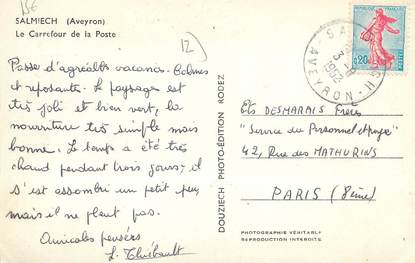 15E
SALMIECH (Aveyron)
Le Carrefour de la Poste
12
Passe d'agréables vacances. Calmes
et reposantes. Le paysage est
très joli et bien vert, la
nourriture très simple mais
bonne. Le temps a été très
chaud pendant trois jours, il
s'est assombri un petit peu,
mais il ne pleut pas.
Amicales pensées
L. Thiébault
DOUZIECH PHOTO-ÉDITION RODEZ
REPUBLIQUE FRANÇAISE
0,20
SALMIECH
AVEYRON
Ets DESMARAIS Frères
"Service du Personnel et paye"
42, Rue des MATHURINS
PARIS (8ème)
PHOTOGRAPHIE VÉRITABLE
REPRODUCTION INTERDITE